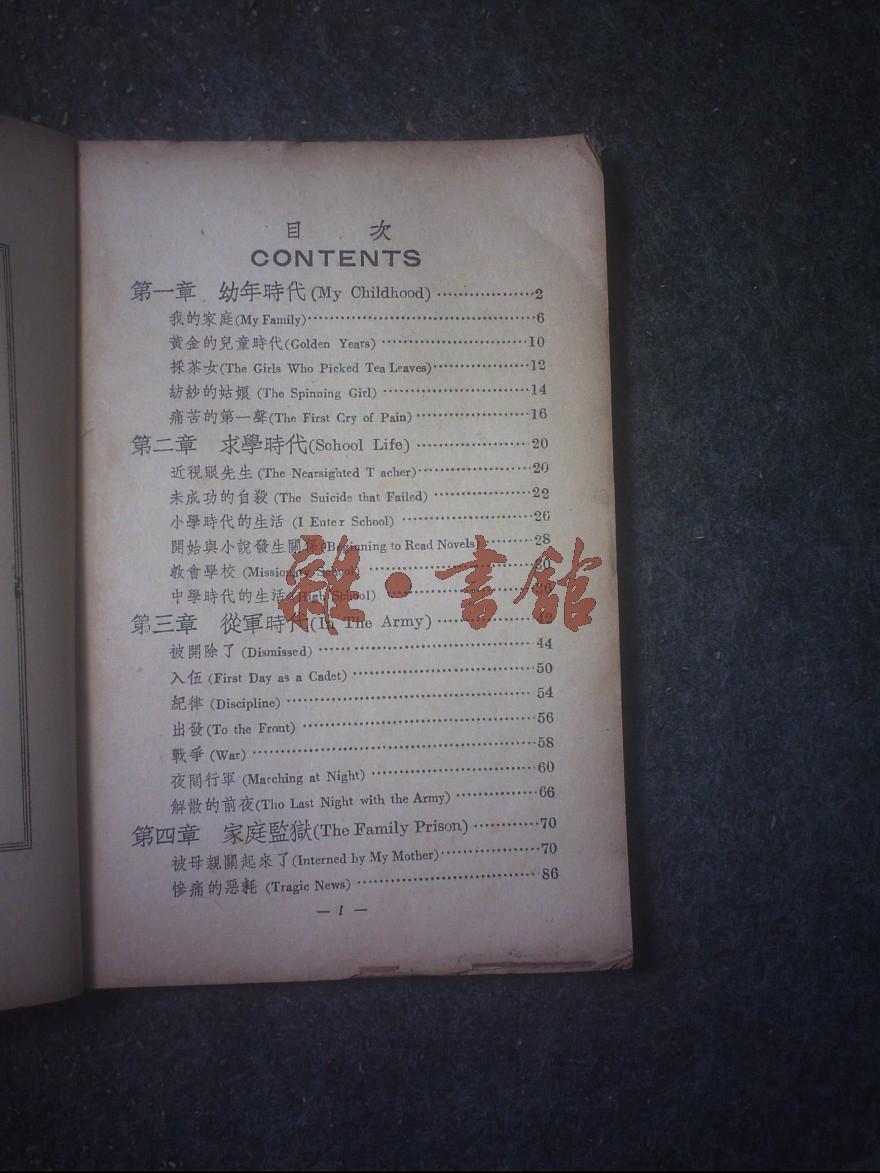 目 次
CONTENTS
第一章 幼年時代(My Childhood) ··················2
我的家庭(My Family)·········································6
黃金的兒童時代(Golden Years) ···························10
採茶女(The Girls Who Picked Tea Leaves)··················12
紡紗的姑娘 (The Spinning Girl) ··························14
痛苦的第一聲(The First Cry of Pain)·····················16
第二章 求學時代(School Life) ····················20
近視眼先生(The Nearsighted T acher)·····················20
未成功的自殺 (The Suicide that Failed) ··················22
小學時代的生活 (I Enter School) ························26
開始與小說發生關係(Beginning to Read Novels)··········28
教會學校 (Missionary School) ·····················30
中學時代的生活(High School) ·····················
第三章 從軍時代(In The Army) ···················42
被開除了(Dismissed) ·······································44
入伍(First Day as a Cadet) ·································50
紀律(Discipline) ············································54
出發(To the Front) ·········································56
戰爭(War) ·················································58
夜間行軍(Marching at Night) ······························60
解散的前夜(Tho Last Night with the Army) ················66
第四章 家庭監獄(The Family Prison) ············70
被母親關起來了(Interned by My Mother)··················70
慘痛的惡耗 (Tragic News) ································86
— 1 —
雜·書館